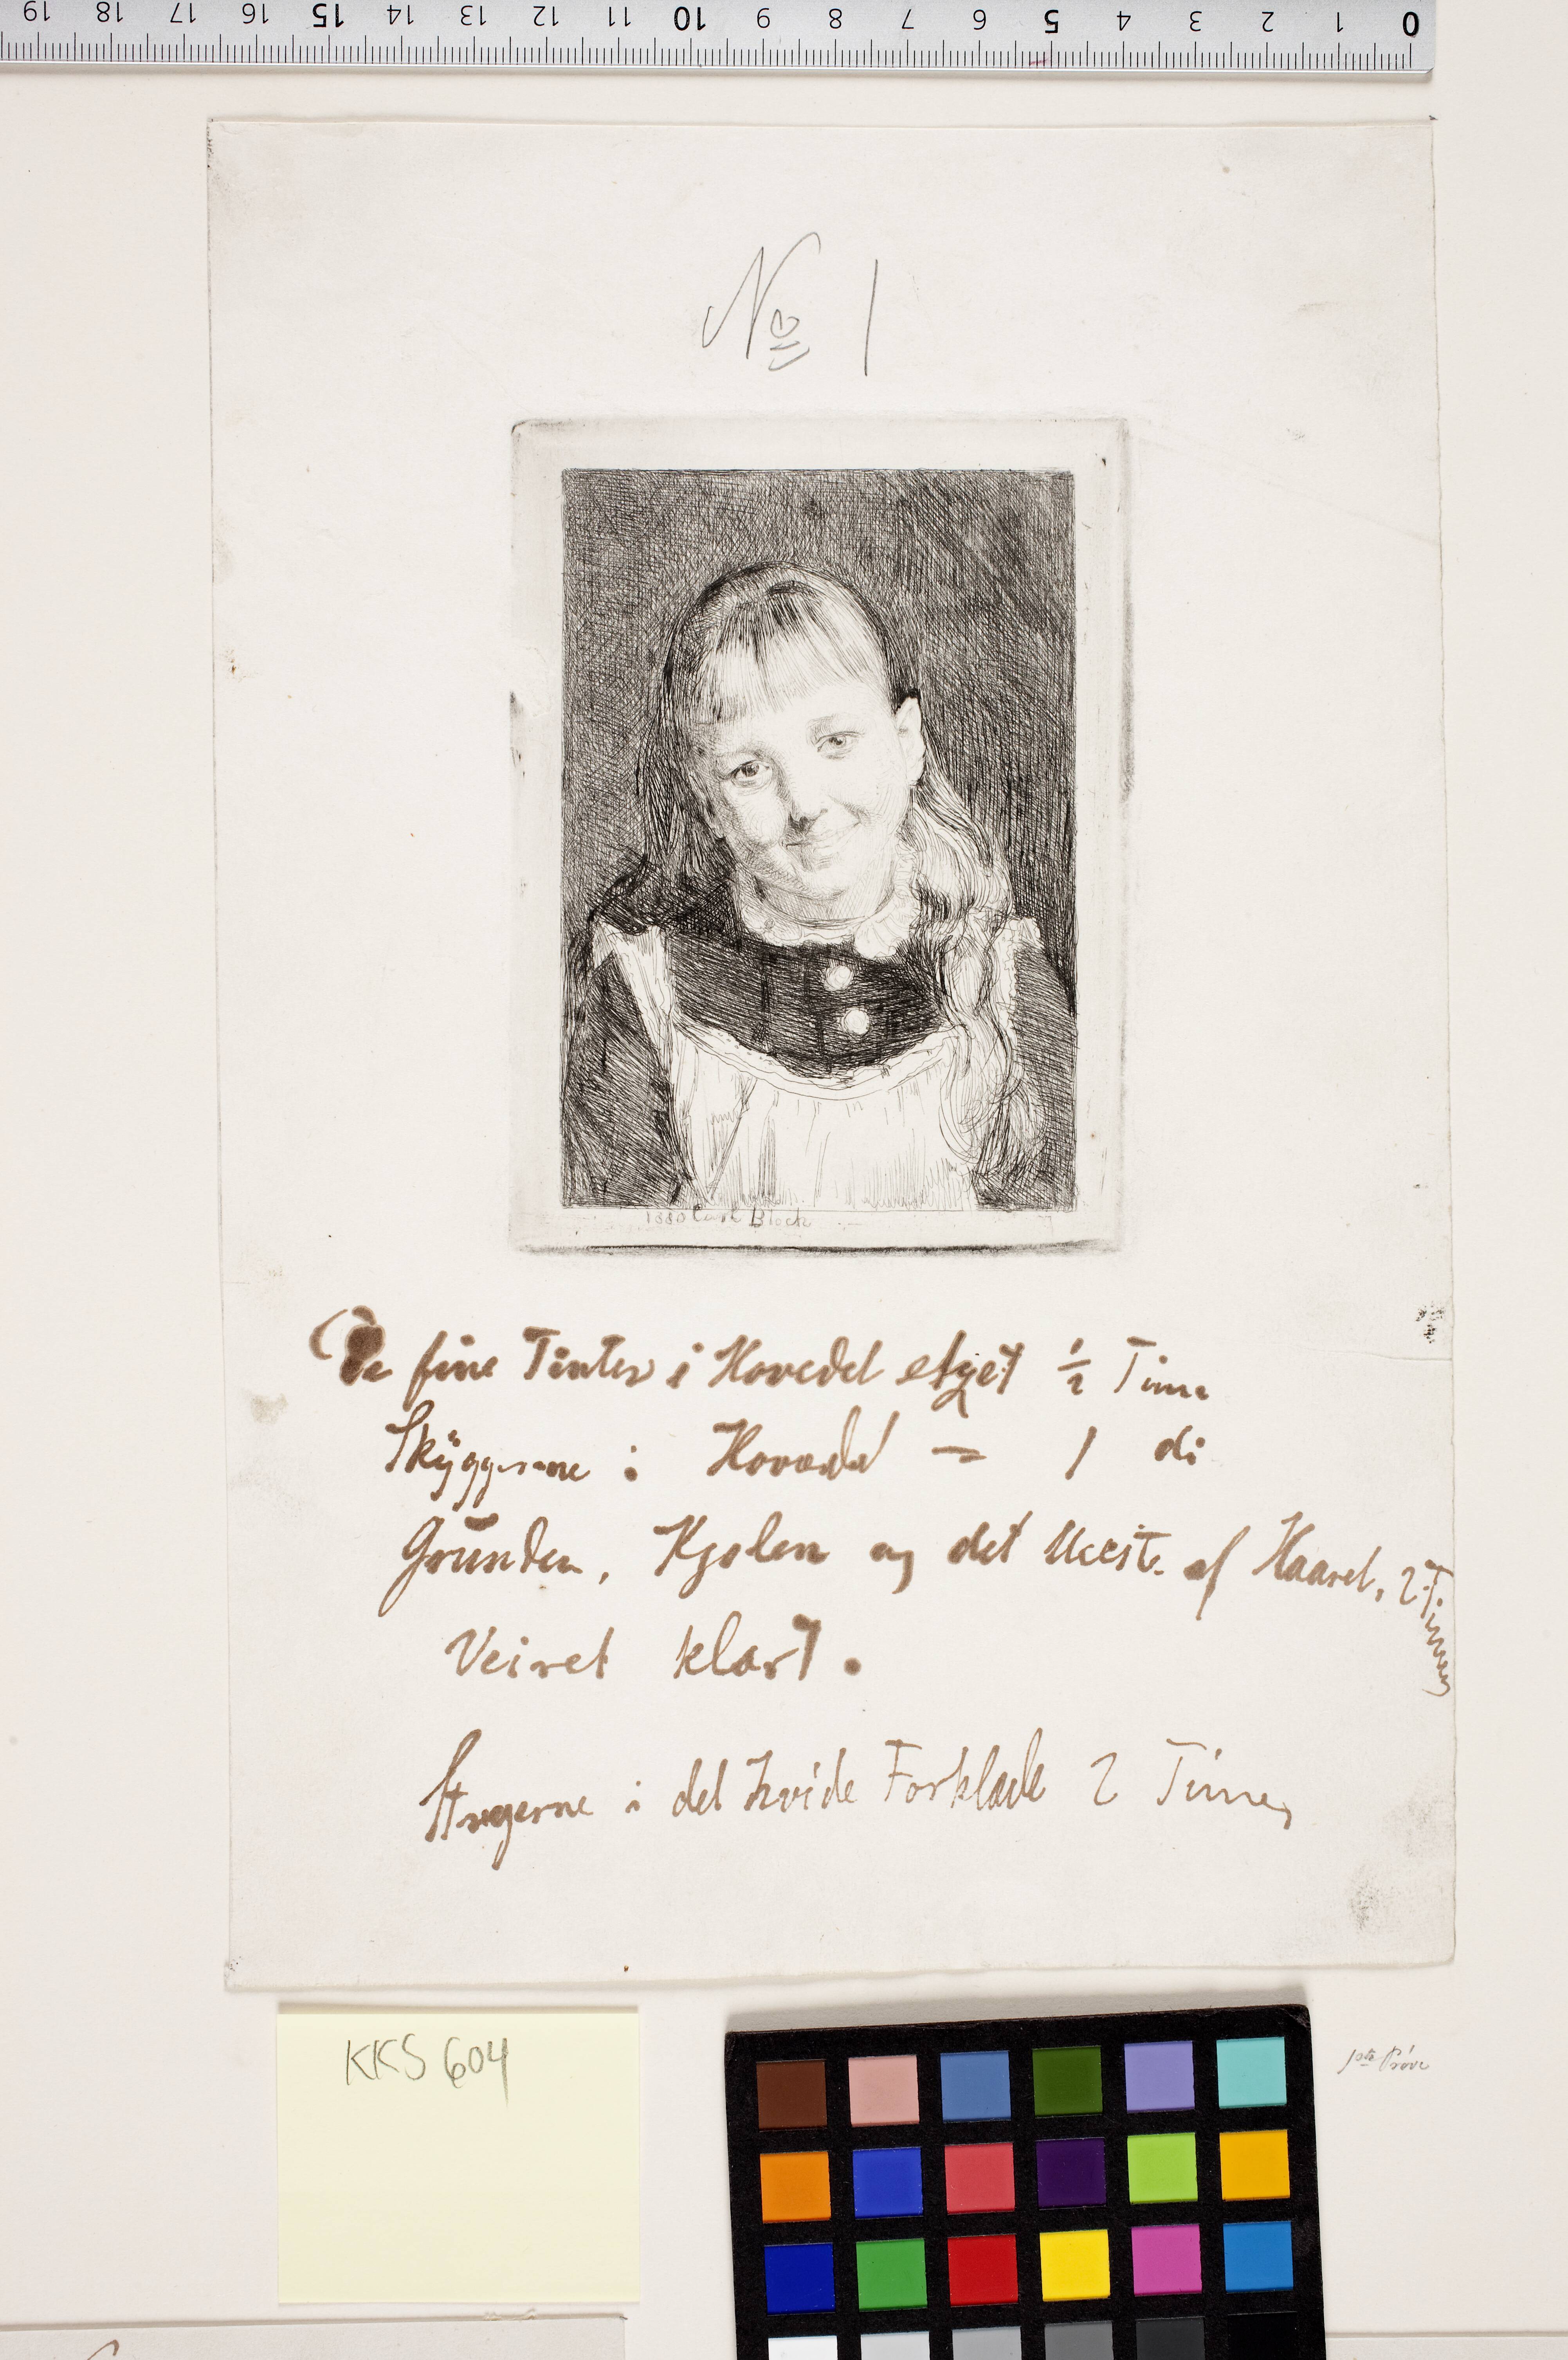 0 1 2 3 4 5 6 7 8 9 10 11 12 13 14 15 16 17 18 19
No 1
1880 Carl Bloch
De fine Tinter i Hovedet etzet ½ Time
Skyggerne i Hovedet = 1 di
Grunden, Kjolen og det Meeste af Haaret, 2 Timer
Veiret klart.
Stregerne i det hvide Forklæde 2 Timer
KKS 604
1ste Prøve